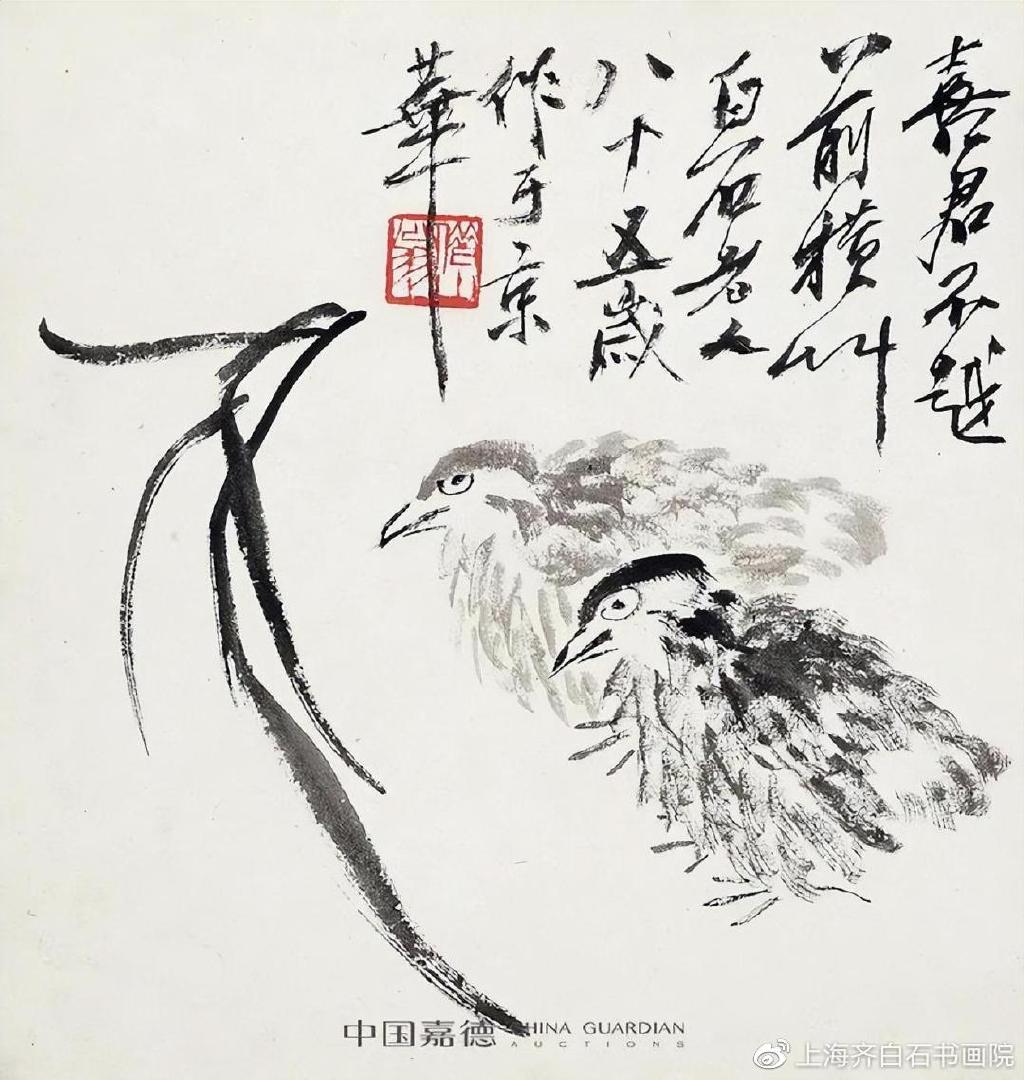 喜君不越
前横艸
白石老人
八十五歲
作于京
華
借山翁
中国嘉德 CHINA GUARDIAN
AUCTIONS
上海齐白石书画院